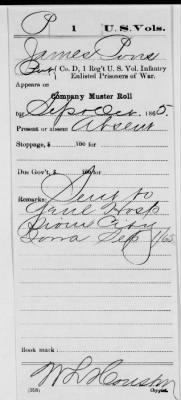 P 1 U.S. Vols.
James Pons
Pvt, Co. D, 1 Reg't U. S. Vol. Infantry
Enlisted Prisoners of War.
Appears on
Company Muster Roll
for Sept & Oct, 1865.
Present or absent Absent
Stoppage, $ 100 for
Due Gov't, $ 100 for
Remarks: Sent to
Genl Hosp
Sioux City
Iowa Sep 1/65
Book mark:
W L Houston
(358) Copyist.